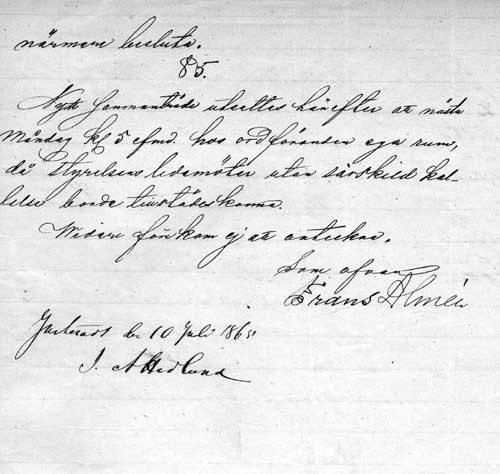 närmare besluta.
§5.
Nytt sammanträde utsattes härefter at nästa
måndag kl 5 efmd. hos ordföranden ega rum,
då Styrelsens ledamöter utan särskild kal-
lelse borde tillstädeskomma.
Widare förekom ej at anteckna.
Som ofvan
Frans Almén
Justeradt den 10 Juli 1865
J. A Hedlund